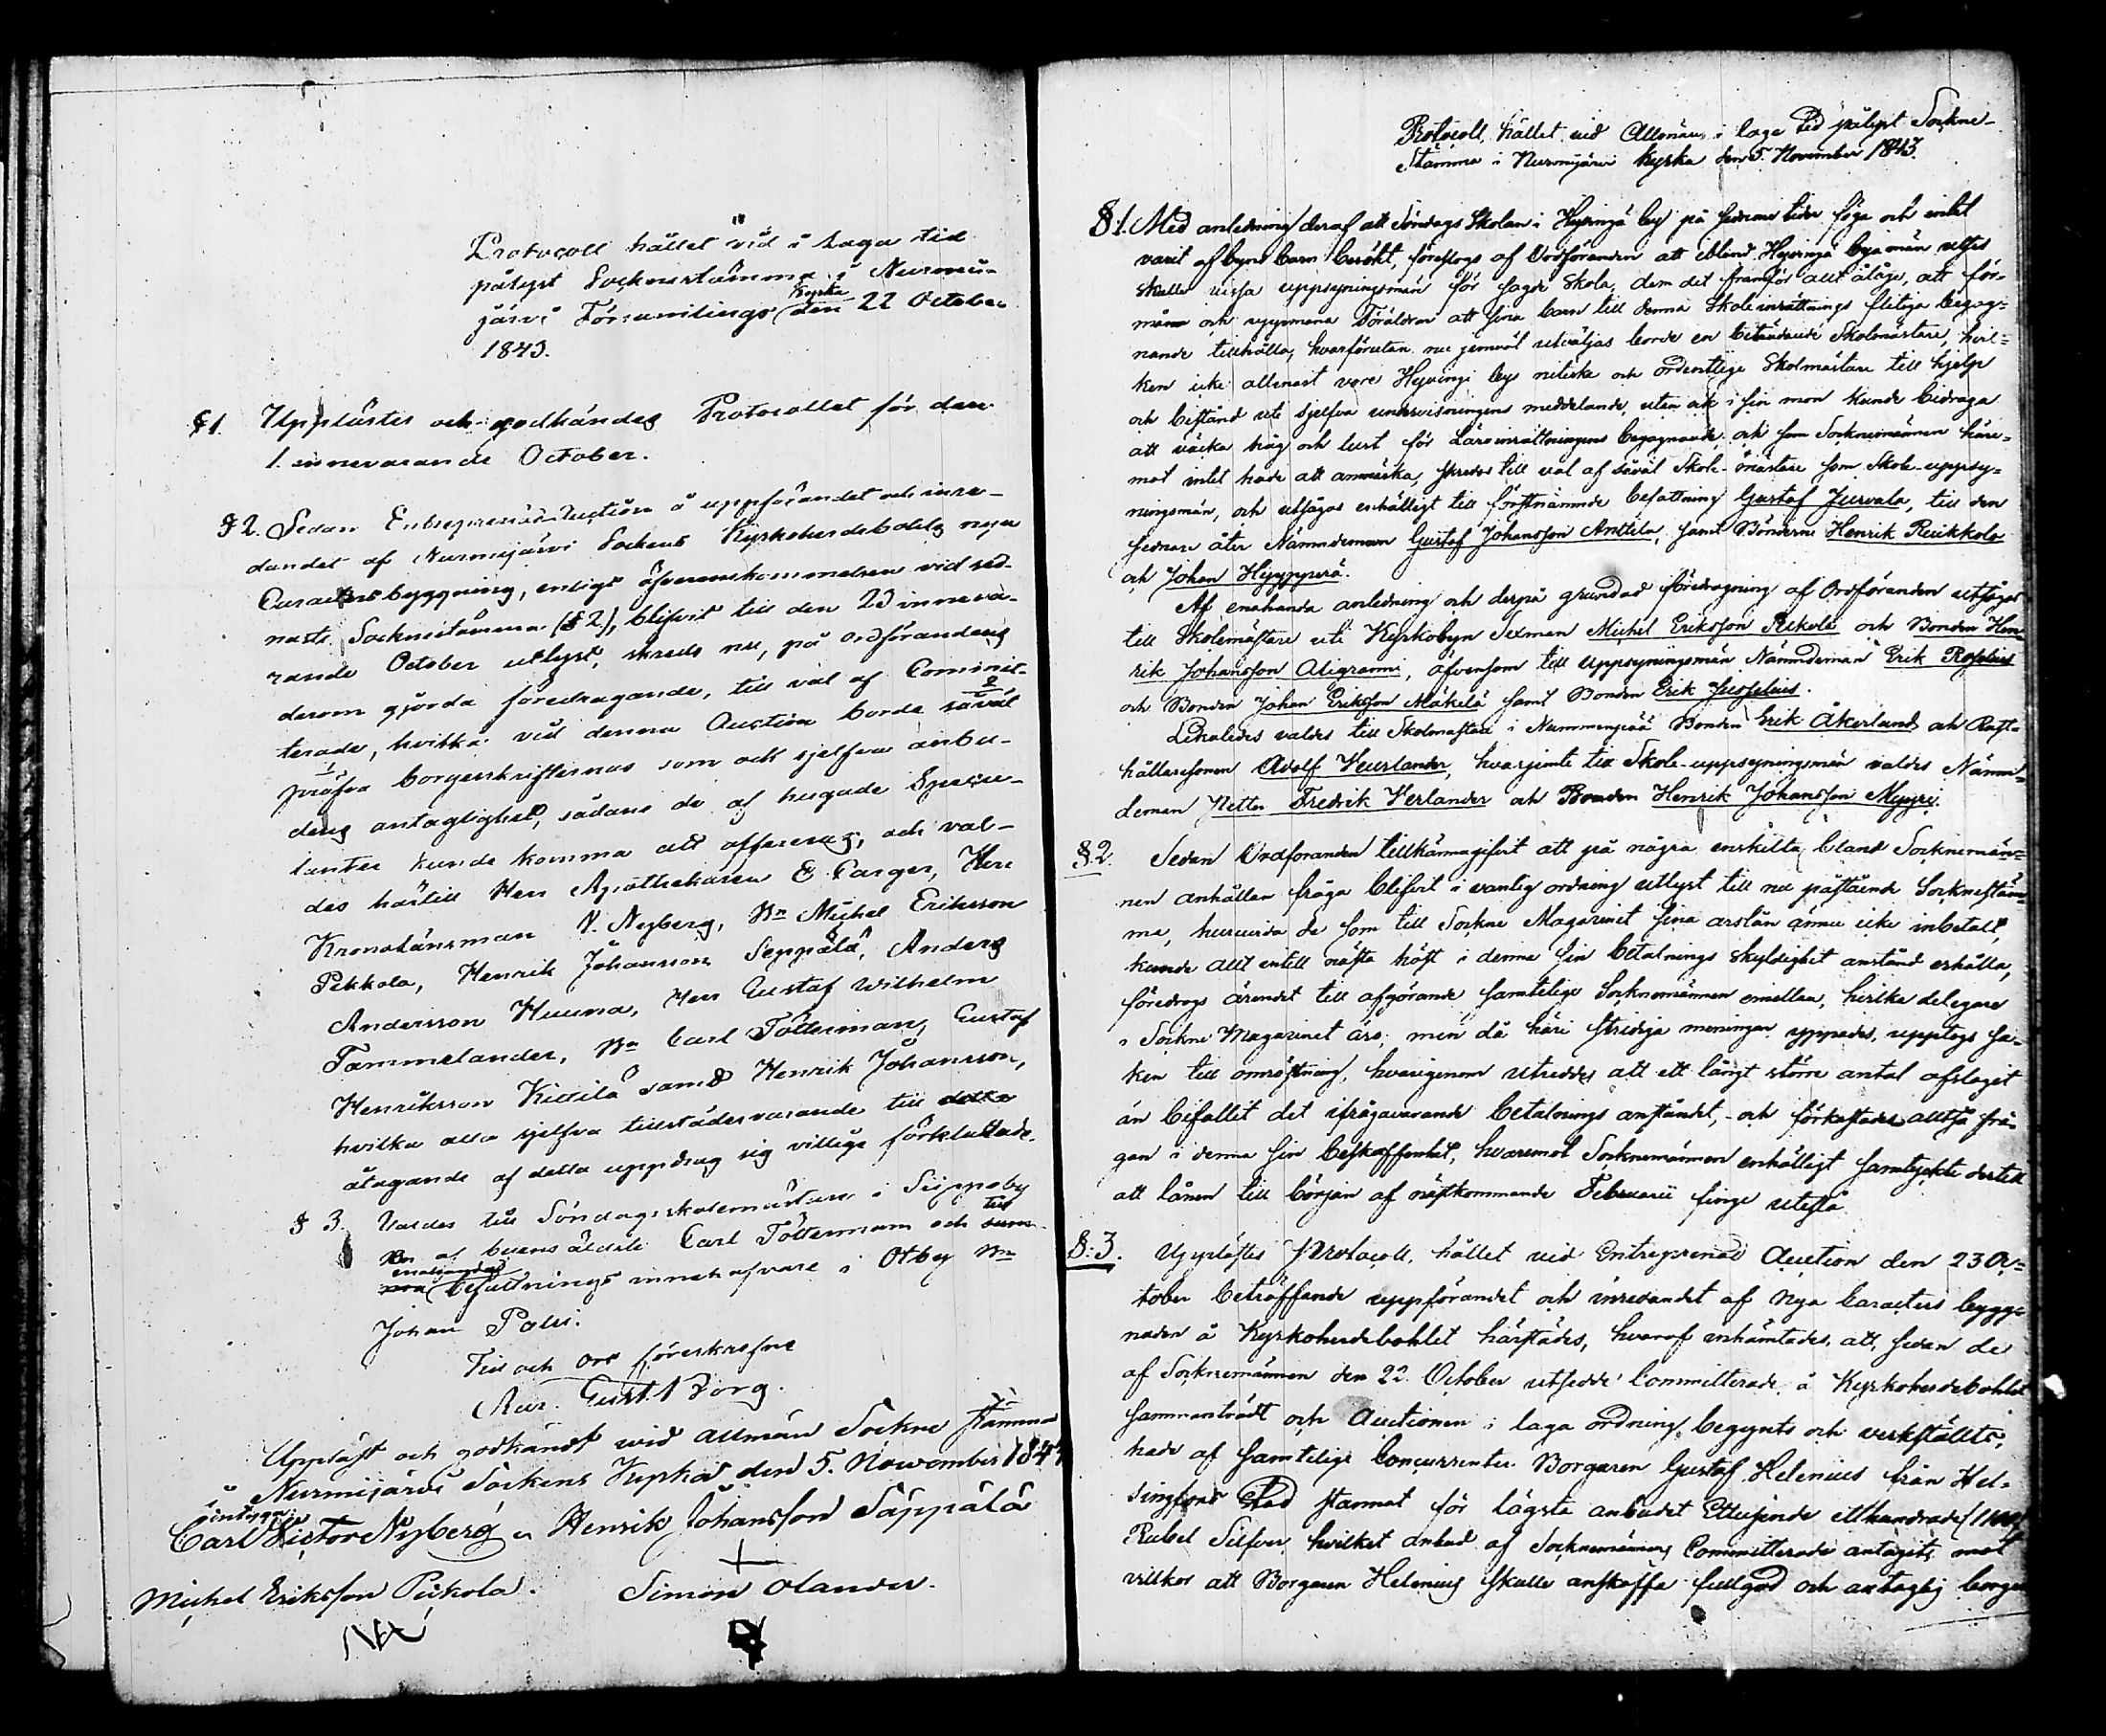 Protocoll hållet vid i Laga tid
pålyst Sockenstämma i Nurmi-
järvi Församlings Kyrka den 22 October
1843.
§ 1. Upplästes och godkändes Protocollet för den
1. innevarande October.
§ 2. Sedan Entreprenad-Auction å uppförandet och inre-
dandet af Nurmijärvi Sockens Kyrkoherdebohls nya
byggning, enligt öfverenskommelsen vid sed-
naste Sockenstämma (§ 2), blifvit till den 23 inneva-
rande October utlyst, skreds nu, på ordförandens
derom gjorda föredragande, till val af Commit-
terade, hvilka vid denna Auction borde såväl
pröfva borgesskrifternas som och sjelfva anbu-
dens antaglighet, sådane de af hugade Specu-
lanter kunde komma att offereras, och val-
des härtill Herr Apothekaren E Farger, Herr
Kronolänsman V. Nyberg, Bn Michel Eriksson
Pekkola, Henrik Johansson Seppälä, Anders
Andersson Huuna, Herr Gustaf Wilhelm
Tammelander, Bn Carl Tötterman, Gustaf
Henriksson Kittilä samt Henrik Johansson,
hvilka alla sjelfva tillstädesvarande till
åtagande af detta uppdrag sig villige förklarade.
§ 3. Valdes till Söndagsskolemästare i Siippoby
Bn af byens äldste Carl Tötterman och till
enahanda befattnings innehafvare i Otby Bn
Johan Palsi.
Tid och ort förerskrefne
Gust. Borg.
Uppläst och godkändt wid allmän Sockne stämma
i Nurmijärvi Sockens Kyrka den 5. November 1843
intyga:
Carl Victor Nyberg Henrik Johansson Säppälä
Michel Eriksson Pickola. Simon Olander.
Protocoll, hållet vid Allmän i laga tid pålyst Sockne-
Stämma i Nurmijärvi Kyrka den 5. November 1843.
§ 1. Med anledning deraf att Söndags Skolan i Hyvingä by på sednare tider föga och intet
varit af byns barn besökt, föreslogs af Ordföranden att ibland Hyvingä byamän utses
skulle vissa uppsyningsmän för sagde Skola, dem det framför allt ålåge, att för-
mana och uppmana Föräldrar att sina barn till denna Skoleinrättnings flitiga begag-
nande tillhålla, hvarförutan nu jemväl utväljas borde en biträdande Skolmästare, hvil-
ken icke allenast vore Hyvinge bys nitiske och ordentlige Skolmästare till hjelp
och bistånd uti sjelfva undervisningens meddelande, utan ock i sin mon kunde bidraga
att väcka håg och lust för Läroinrättningens begagnande; och som Socknemännen häre-
mot intet hade att anmärka, skreds till val af såväl Skole-mästare som Skole-uppsy-
ningsmän, och utsågos enhälligt till förstnämnde befattning Gustaf Jurvala, till den
sednare åter Nämndeman Gustaf Johansson Anttila, samt Bönderne Henrik Ruikkola
och Johan Hyyppärä.
Af enahanda anledning och derpå grundad föredragning af Ordföranden utsågos
till Skolemästare uti Kyrkobyn Sexman Michel Eriksson Pekola och Bonden Hen-
rik Johansson Aligrammi, äfvensom till uppsyningsmän Nämndeman Erik
och Bonden Johan Eriksson Mäkelä samt Bonden Erik Juselius.
Likaledes valdes till Skolmästare i Nummenpää Bonden Erik Åkerlund och Rust-
hållaresonen Adolf Heurlander, hvarjemte till Skole-uppsyningsmän valdes Nämn-
deman Petter Fredrik Herlander och Bonden Henrik Johansson Myyri.
§. 2. Sedan Ordföranden tillkännagifvit att på några enskilta, bland Socknemän-
nen anhållan fråga blifvit i vanlig ordning utlyst till nu påstående Socknestäm-
ma, huruvida de som till Sockne Magazinet sina årslån ännu icke inbetalt,
kunde allt intill nästa höst i denna sin betalnings skyldighet anstånd erhålla,
föredrogs ärendet till afgörande samtelige Socknemännen emellan, hvilka delegare
i Sockne Magazinet äro; men då häri stridiga meningar yppades, upptogs sa-
ken till omröstning, hvarigenom utreddes att ett långt större antal afslagit
än bifallit det ifrågavarande betalnings anståndet, och förkastades alltså frå-
gan i denna sin beskaffenhet, hvaremot Socknemännen enhälligt samtyckte dertill
att lånen till början af nästkommande Februarii finge utestå.
§. 3. Upplästes Protocoll, hållet vid Entreprenad Auction den 23 Oc-
tober beträffande uppförandet och inredandet af Nya Caracters bygg-
naden å Kyrkoherdebohlet härstädes, hvaraf inhämtades, att, sedan de
af Socknemännen den 22. October utsedde Committerade å Kyrkoherdebohlet
sammanträdt och Auctionen i laga ordning begynts och verkställts,
hade af samtelige Concurrenter Borgaren Gustaf Helenius från Hel-
singfors Stad stannat för lägsta anbudet Ettusende etthundrade (1100)
Rubel Silfver, hvilket anbud af Socknemännens Committerade antagits mot
vilkor att Borgaren Helenius skulle anskaffa fullgod och antaglig borgen